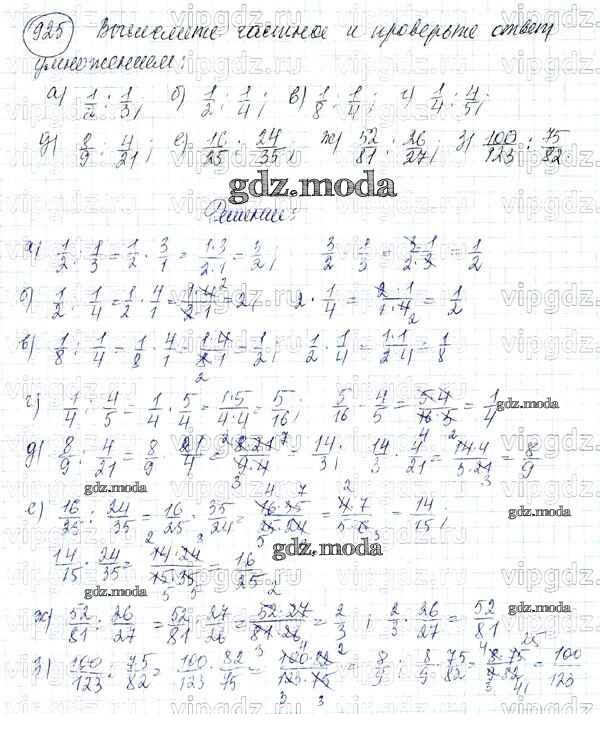 925 Вычислите частное и проверьте ответ
умножением:
а) 1/2 : 1/3; б) 1/2 : 1/4; в) 1/8 : 1/4; г) 1/4 : 4/5;
д) 8/9 : 4/21; е) 16/25 : 24/35; ж) 52/81 : 26/27; з) 100/123 : 75/82.
gdz.moda
Решение:
а) 1/2 : 1/3 = 1/2 · 3/1 = 1·3/2·1 = 3/2; 3/2 · 1/3 = 3·1/2·3 = 1/2
б) 1/2 : 1/4 = 1/2 · 4/1 = 1·4/2·1 = 2; 2 · 1/4 = 2·1/1·4 = 1/2
в) 1/8 : 1/4 = 1/8 · 4/1 = 1·4/8·1 = 1/2; 1/2 · 1/4 = 1·1/2·4 = 1/8
г) 1/4 : 4/5 = 1/4 · 5/4 = 1·5/4·4 = 5/16; 5/16 · 4/5 = 5·4/16·5 = 1/4
gdz.moda
д) 8/9 : 4/21 = 8/9 · 21/4 = 8·21/9·4 = 14/3; 14/3 · 4/21 = 14·4/3·21 = 8/9
gdz.moda
е) 16/35 : 24/35 = 16/25 · 35/24 = 16·35/25·24 = 14/15;
gdz.moda
gdz.moda
14/15 · 24/35 = 14·24/15·35 = 16/25
gdz.moda
ж) 52/81 : 26/27 = 52/81 · 27/26 = 52·27/81·26 = 2/3; 2/3 · 26/27 = 52/81
gdz.moda
з) 100/123 : 75/82 = 100/123 · 82/75 = 100·82/123·75 = 8/9; 8/9 · 75/82 = 8·75/9·82 = 100/123
vipgdz.ru